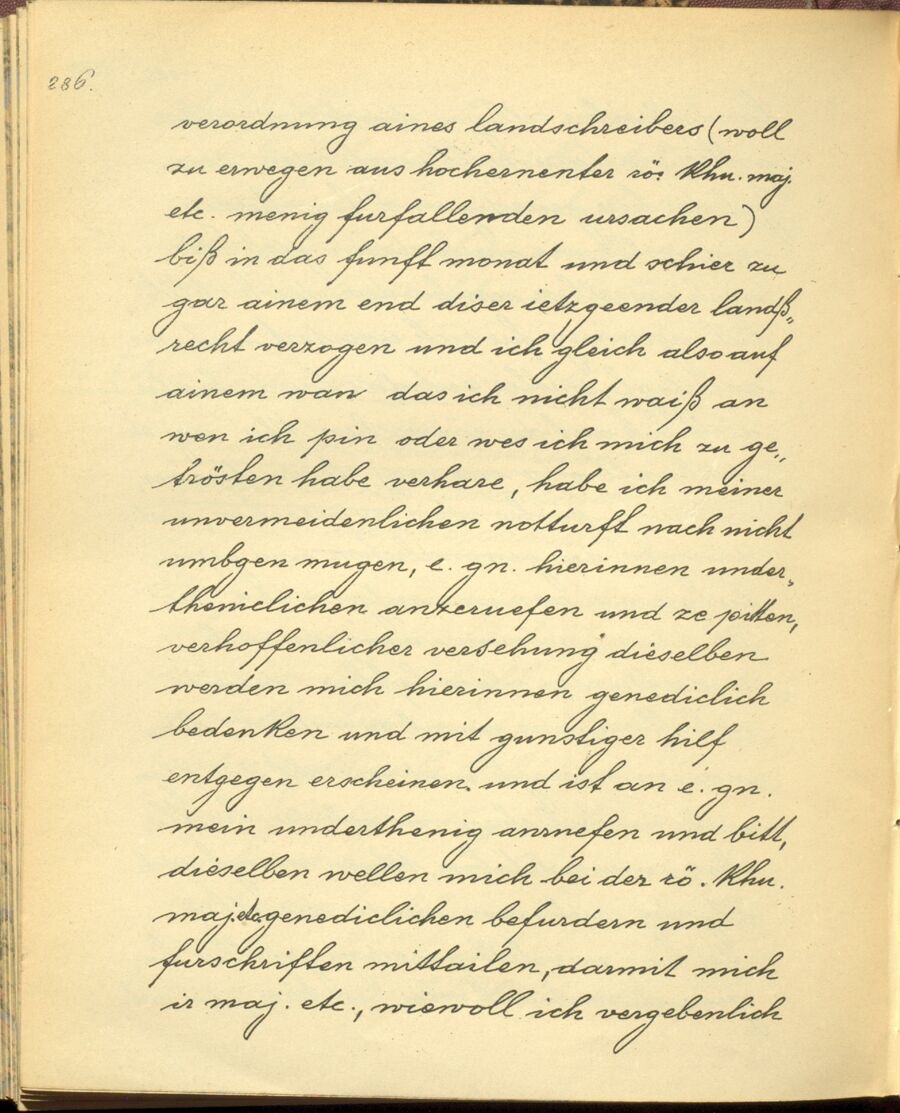 286.
verordnung aines landschreibers (woll
zu erwegen aus hochernenter rö. Khu. maj.
etc. menig furfallenden ursachen)
biß in das funfft monat und schier zu
gar ainem end diser ietzgeender landß„
recht verzogen und ich gleich also auf
ainem wan das ich nicht waiß an
wen ich pin oder wes ich mich zu ge„
trösten habe verhare, habe ich meiner
unvermeidenlichen notturft nach nicht
umbgen mugen, e. gn. hierinnen under„
theniclichen anzeruefen und ze pitten,
verhoffenlicher versehung dieselben
werden mich hierinnen genediclich
bedenken und mit gunstiger hilf
entgegen erscheinen. und ist an e. gn.
mein underthenig anruefen und bitt,
dieselben wellen mich bei der rö. Khu.
maj. etc. genediclichen befurdern und
furschriften mittailen, darmit mich
ir maj. etc., wiewoll ich vergebenlich